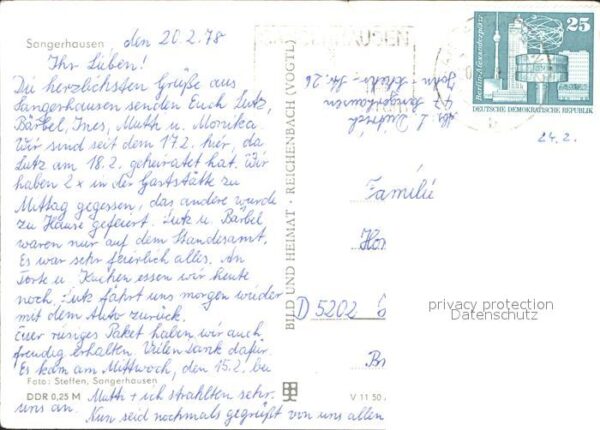 Sangerhausen, den 20.2.78
Ihr Lieben!
Die herzlichsten Grüße aus
Sangerhausen senden Euch Lutz,
Bärbel, Ines, Muth u. Monika.
Wir sind seit dem 17.2. hier, da
Lutz am 18.2. geheiratet hat. Wir
haben 2x in der Gaststätte zu
Mittag gegessen, das andere wurde
zu Hause gefeiert. Lutz u. Bärbel
waren nur auf dem Standesamt.
Es war sehr feierlich alles. An
Torte u. Kuchen essen wir heute
noch. Lutz fährt uns morgen wieder
mit dem Auto zurück.
Euer riesiges Paket haben wir auch
freudig erhalten. Vielen Dank dafür.
Es kam am Mittwoch, den 15.2. bei
Foto: Steffen, Sangerhausen
DDR 0,25 M
Muth + ich strahlten sehr.
uns an.
Nun seid nochmals gegrüßt von uns allen
BILD UND HEIMAT · REICHENBACH (VOGTL)
V 11 50
47 Sangerhausen
Str. 26
25
Berlin-Alexanderplatz
DEUTSCHE DEMOKRATISCHE REPUBLIK
24.2.
Familie
D 5202
privacy protection
Datenschutz